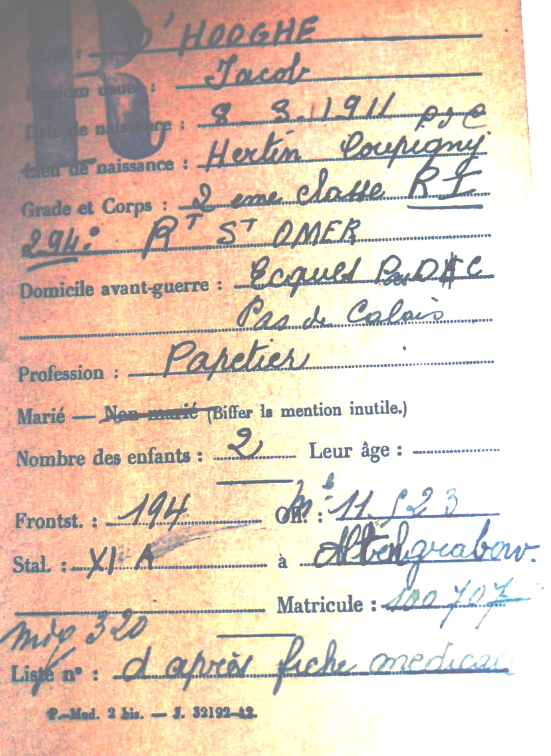 R
Nom : D'HOOGHE
Prénom usuel : Jacob
Date de naissance : 8-8-1911
Lieu de naissance : Hertin Coupigny P d C
Grade et Corps : 2 eme classe R I
294e RT ST OMER
Domicile avant-guerre : Ecques P DAC
Pas de Calais
Profession : Papetier
Marié — Non marié (Biffer la mention inutile.)
Nombre des enfants : 2 Leur âge :
Frontst. : 194 Off. : 11.523
Stal. : XI A à Altengrabow.
Matricule : 100707
320
Liste n° : d après fiche medicale
P.-Mod. 2 bis. — J. 32192-42.